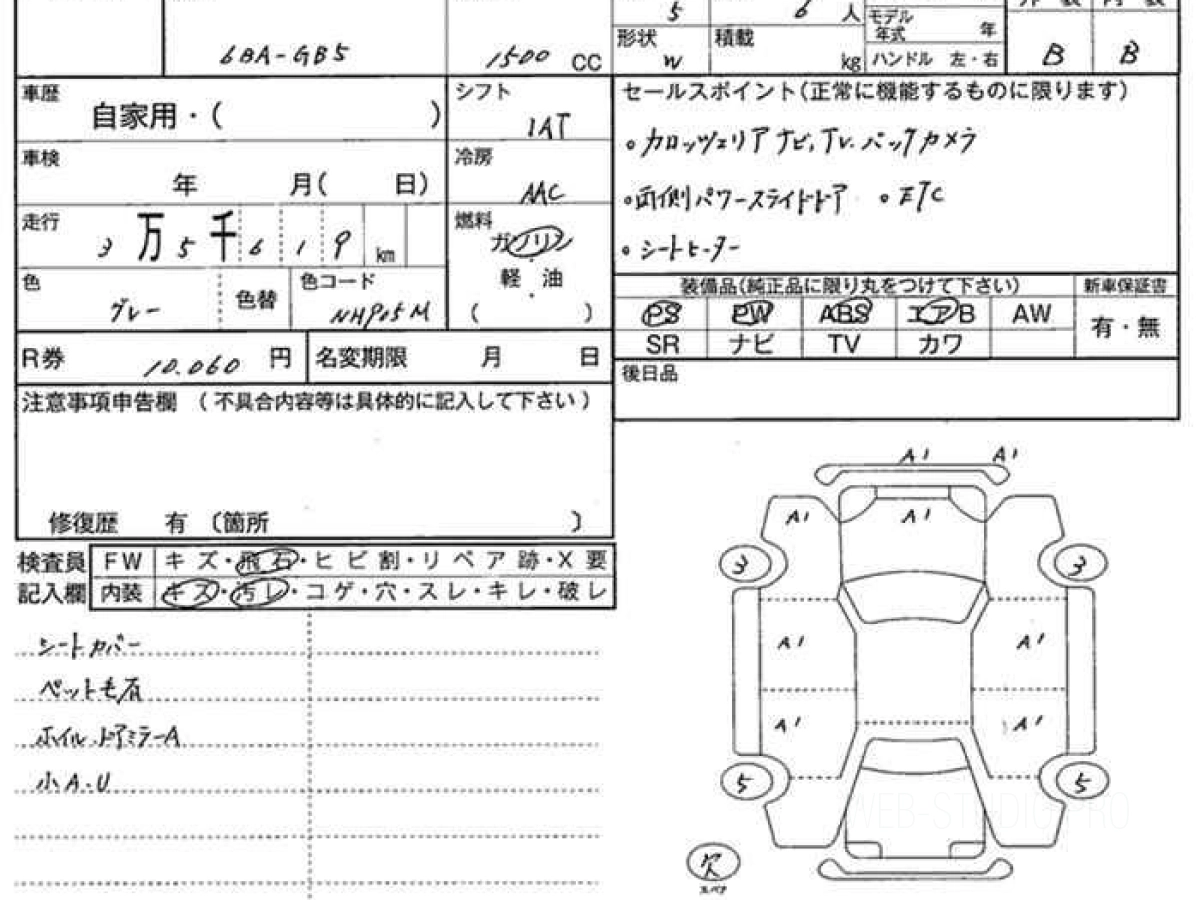 5 6 人 モデル年式 年
6BA-GB5 1500 CC 形状 W 積載 kg ハンドル 左・右 B B
車歴 自家用・( )
シフト IAT
車検 年 月( 日)
冷房 AAC
走行 3万5千619km
燃料 ガソリン
軽 油
( )
色 グレー 色替 色コード NH905M
R券 10.060 円 名変期限 月 日
セールスポイント(正常に機能するものに限ります)
。カロッツェリアナビ,TV.バックカメラ
。両側パワースライドドア 。ETC
。シートヒーター
装備品(純正品に限り丸をつけて下さい) 新車保証書
PS PW ABS エアB AW 有・無
SR ナビ TV カワ
後日品
注意事項申告欄 (不具合内容等は具体的に記入して下さい)
修復歴 有 〔箇所 〕
検査員 FW キズ・飛石・ヒビ割・リペア跡・X要
記入欄 内装 キズ・汚レ・コゲ・穴・スレ・キレ・破レ
シートカバー
ペット毛有
ホイル.ドアミラーA
小A.U
A1 A1
A1 A1
3 3
A1 A1
A1 A1
5 5
WEB-STUDIO PRO
欠
スペア